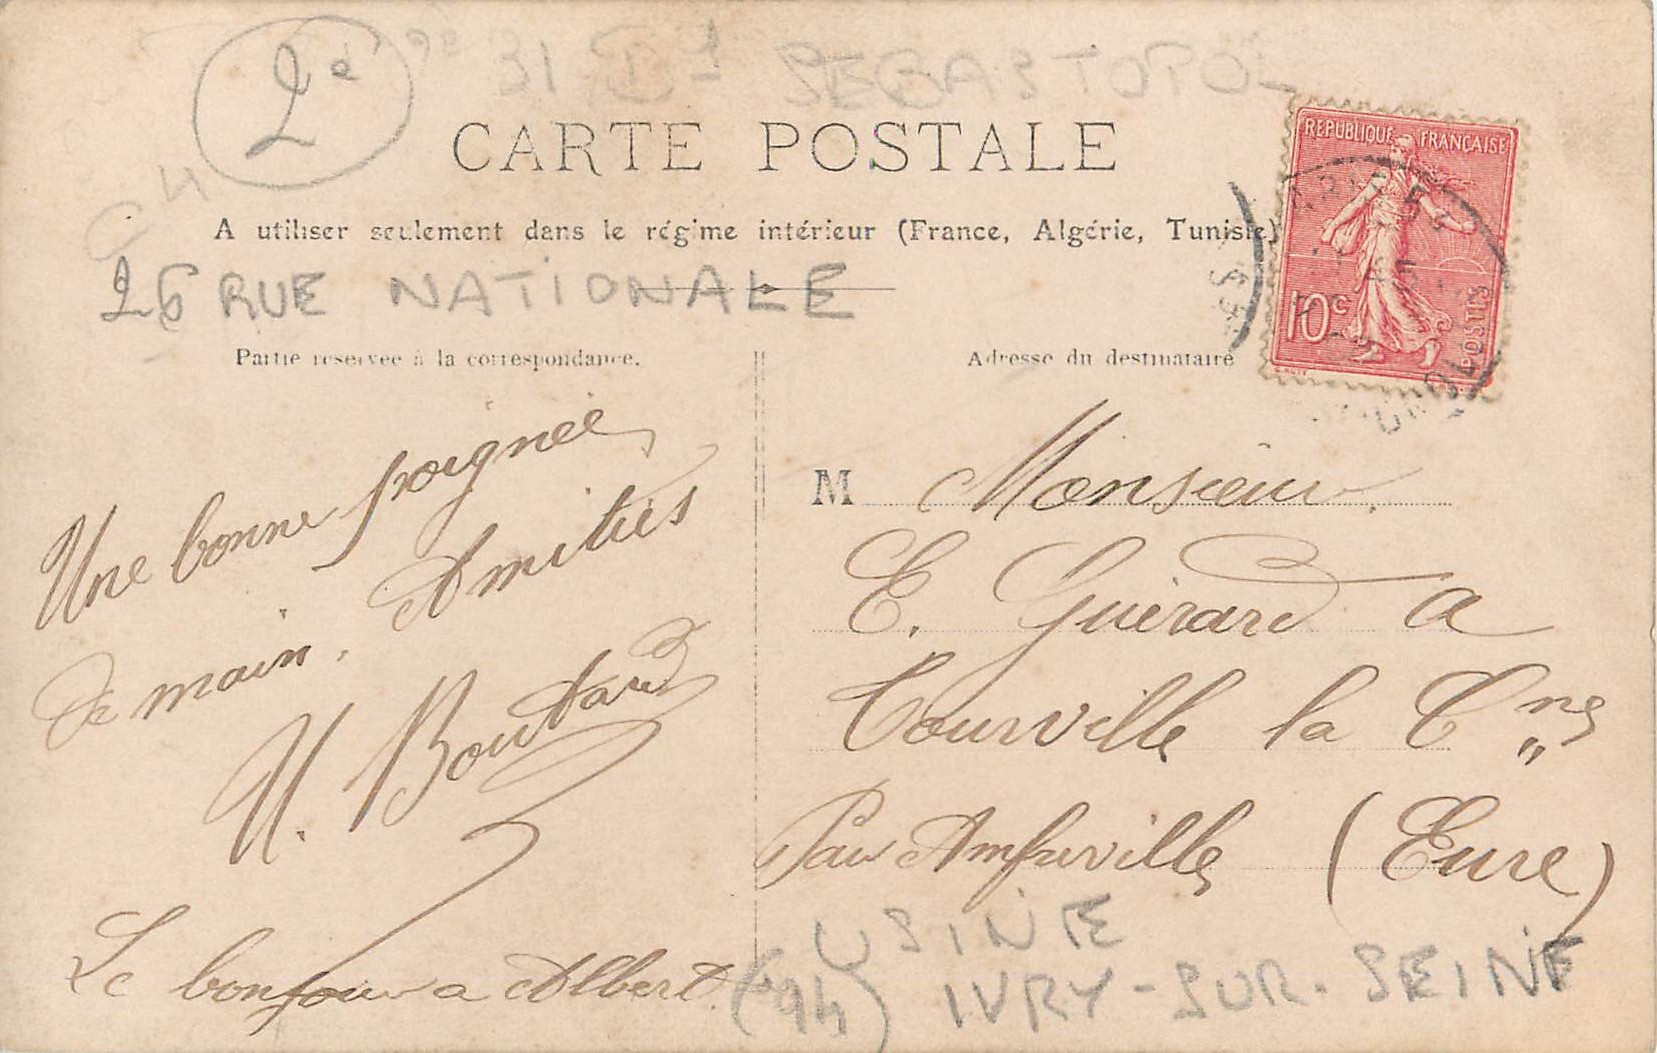 2e
31 Bd SEBASTOPOL
CARTE POSTALE
A utiliser seulement dans le régime intérieur (France, Algérie, Tunisie)
26 RUE NATIONALE
Partie réservée à la correspondance.
Adresse du destinataire
REPUBLIQUE FRANÇAISE
10c
POSTES
Une bonne poignée
de main. Amitiés
H. Boutard
Le bonjour a Albert.
M Monsieur.
E. Guérard a
Tourville la Cne
Par Amfreville
(Eure)
USINE
(94) IVRY-SUR-SEINE